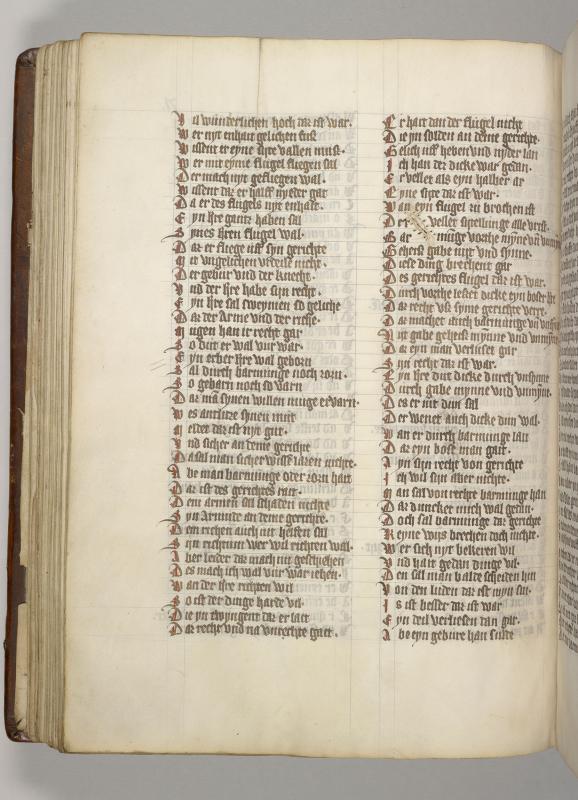 Vil wunderlichen hoch daz ist war.
Wer nyt enhait gelichen fuß
Wissent er eyne syte vallen muß.
Wer mit eyme flugel fliegen sal
Der mach nyt gefliegen wal.
Wissent daz er halff nyeder gar
Da er des flugels nyt enhait.
Eyn hre gantz haben sal
Synes hren flugel wal.
Daz er fliege uff syn gerichte
Mit ungelichen nicht.
Der gebur und der knecht.
Und der hre habe sin recht.
Eyn hre sal tweynen so geliche
Daz der Arme und der riche.
Mugen han ir recht gar
So dut er wal vur war.
Eyn erber hre wal geborn
Sal durch barminge noch zorn.
So gebarn noch so varn
Daz man synen willen muge ervarn.
Wes antlitze synen mut
Meldet daz ist nyt gut.
Und sicher an deme gerichte
Da sal man sicher lazen nichte.
Abe man barminge oder zorn hait
Daz ist des gerichtes rait.
Dem armen sal schaden nichte
Syn Armude an deme gerichte.
Den richen auch nit helfen sal
Syn richtum wer wil richten wal.
Aber leider daz mach nit geschiehen
Des mach ich wal vur war iehen.
Wan der hre richten wil
So ist der dinge harde vil.
Die yn twyngent daz er lait
Daz recht und na unrechte gait.
Er hait dan der flugel nicht
Die yn solden an deme gerichte.
Gelich uff heben und nyder lan
Ich han der dicke war gedan.
Er vellet als eyn halber ar
Eyne syte daz ist war.
Wan eyn flugel zu brochen ist
Der vellet snellinge alle vrist.
Gar muge vorthe mynne und
Geheis gabe nyt und synne.
Diese ding brechent gar
Des gerichtes flugel daz ist war.
Durch vorthe lesset dicke eyn boser hre
Daz recht uß syme gerichte verre.
Daz machet auch barminge
Nyt gabe geheis mynne und unmynne
Daz eyn man verluset gar
Syn recht daz ist war.
Eyn hre dut dicke durch unsynne
Durch gabe mynne und unmynne.
Des er nit dun sal
Der wenet auch dicke dun wal.
Wan er durch barminge lait
Daz eyn bose man gait.
Ayn syn recht von gerichte
Ich wil syn aber nichte.
Man sal von rechte barminge han
Daz duncket mich wal gedan.
Doch sal barminge daz gerichte
Keyne wijs brechen doch nichte.
Wer sich nyt bekeren wil
Und hait gedan dinge vil.
Den sal man balde scheiden hin
Von den luden daz ist myn sin.
Is ist besser daz ist war
Eyn deil verliesen dan gar.
Abe eyn gebure han sulde